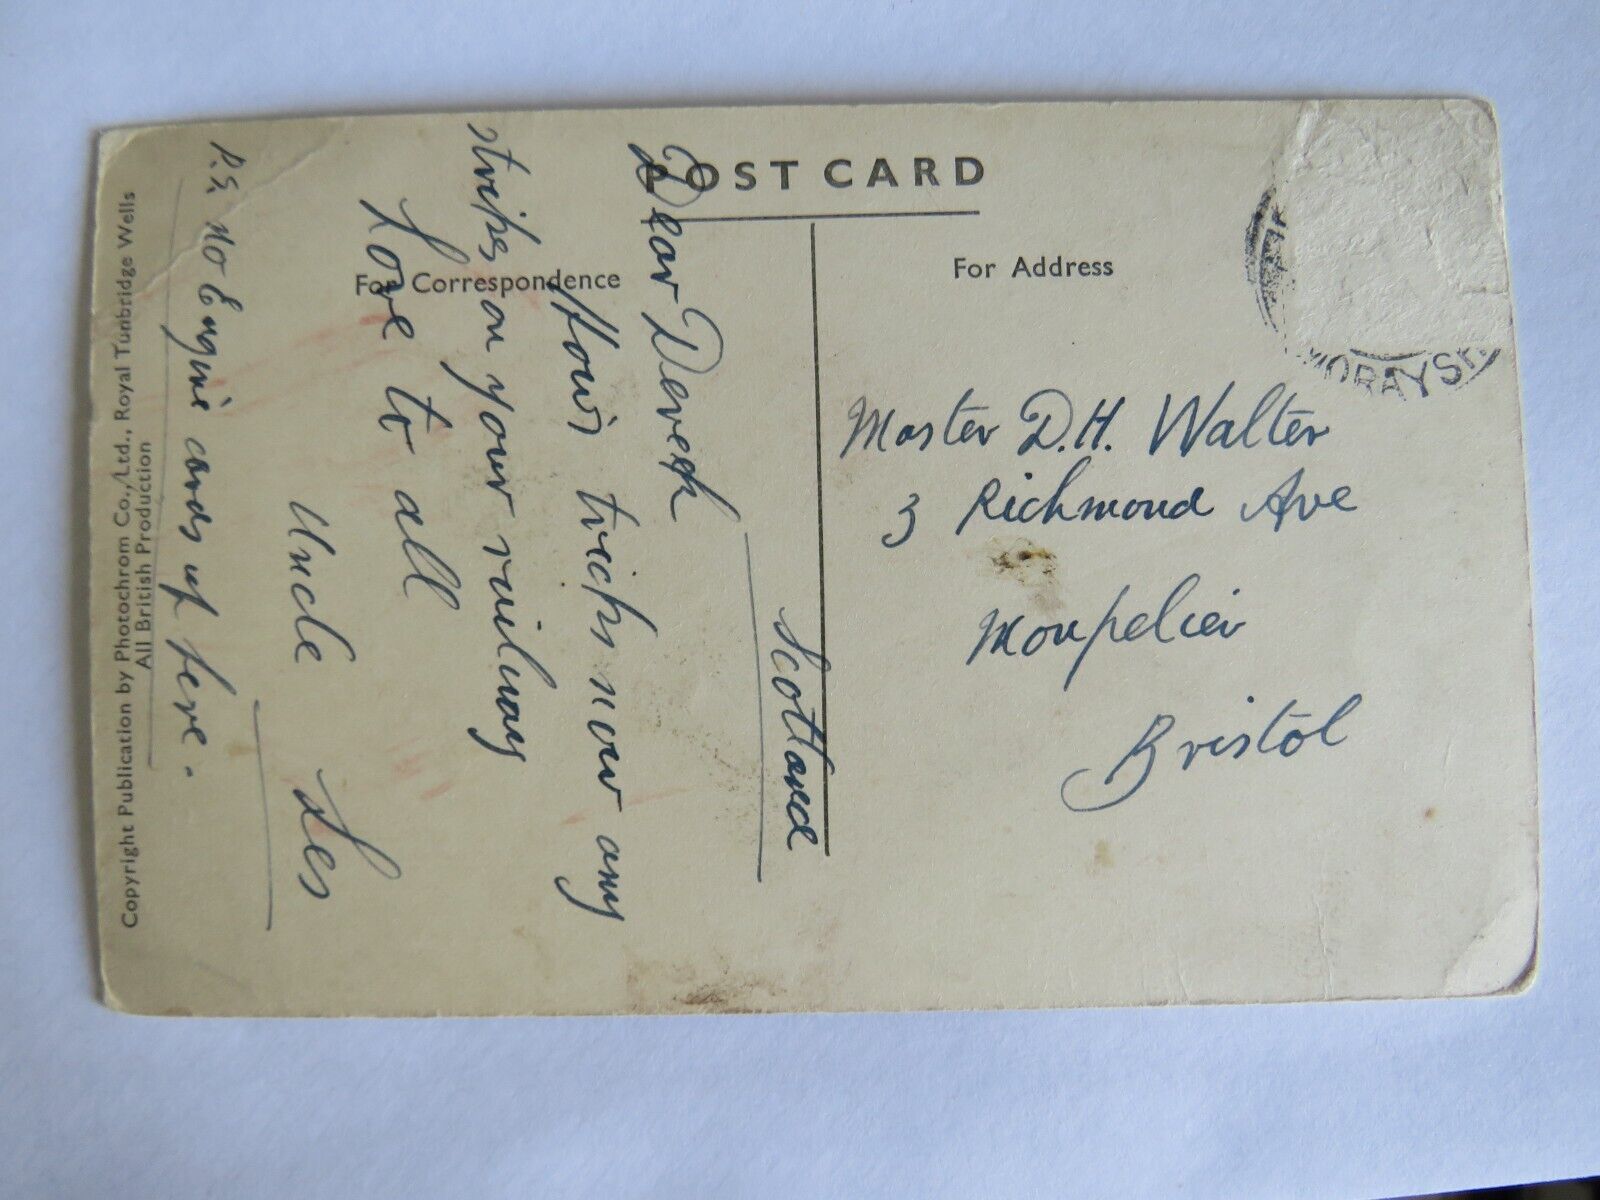 POST CARD
For Correspondence
For Address
Scotland
Dear Derek
How's tricks now any
strikes on your railway
Love to all
Uncle Les
P.S. No Engine cards up here.
Master D.H. Walter
3 Richmond Ave
Monpelier
Bristol
MORAYSH
Copyright Publication by Photochrom Co., Ltd., Royal Tunbridge Wells
All British Production